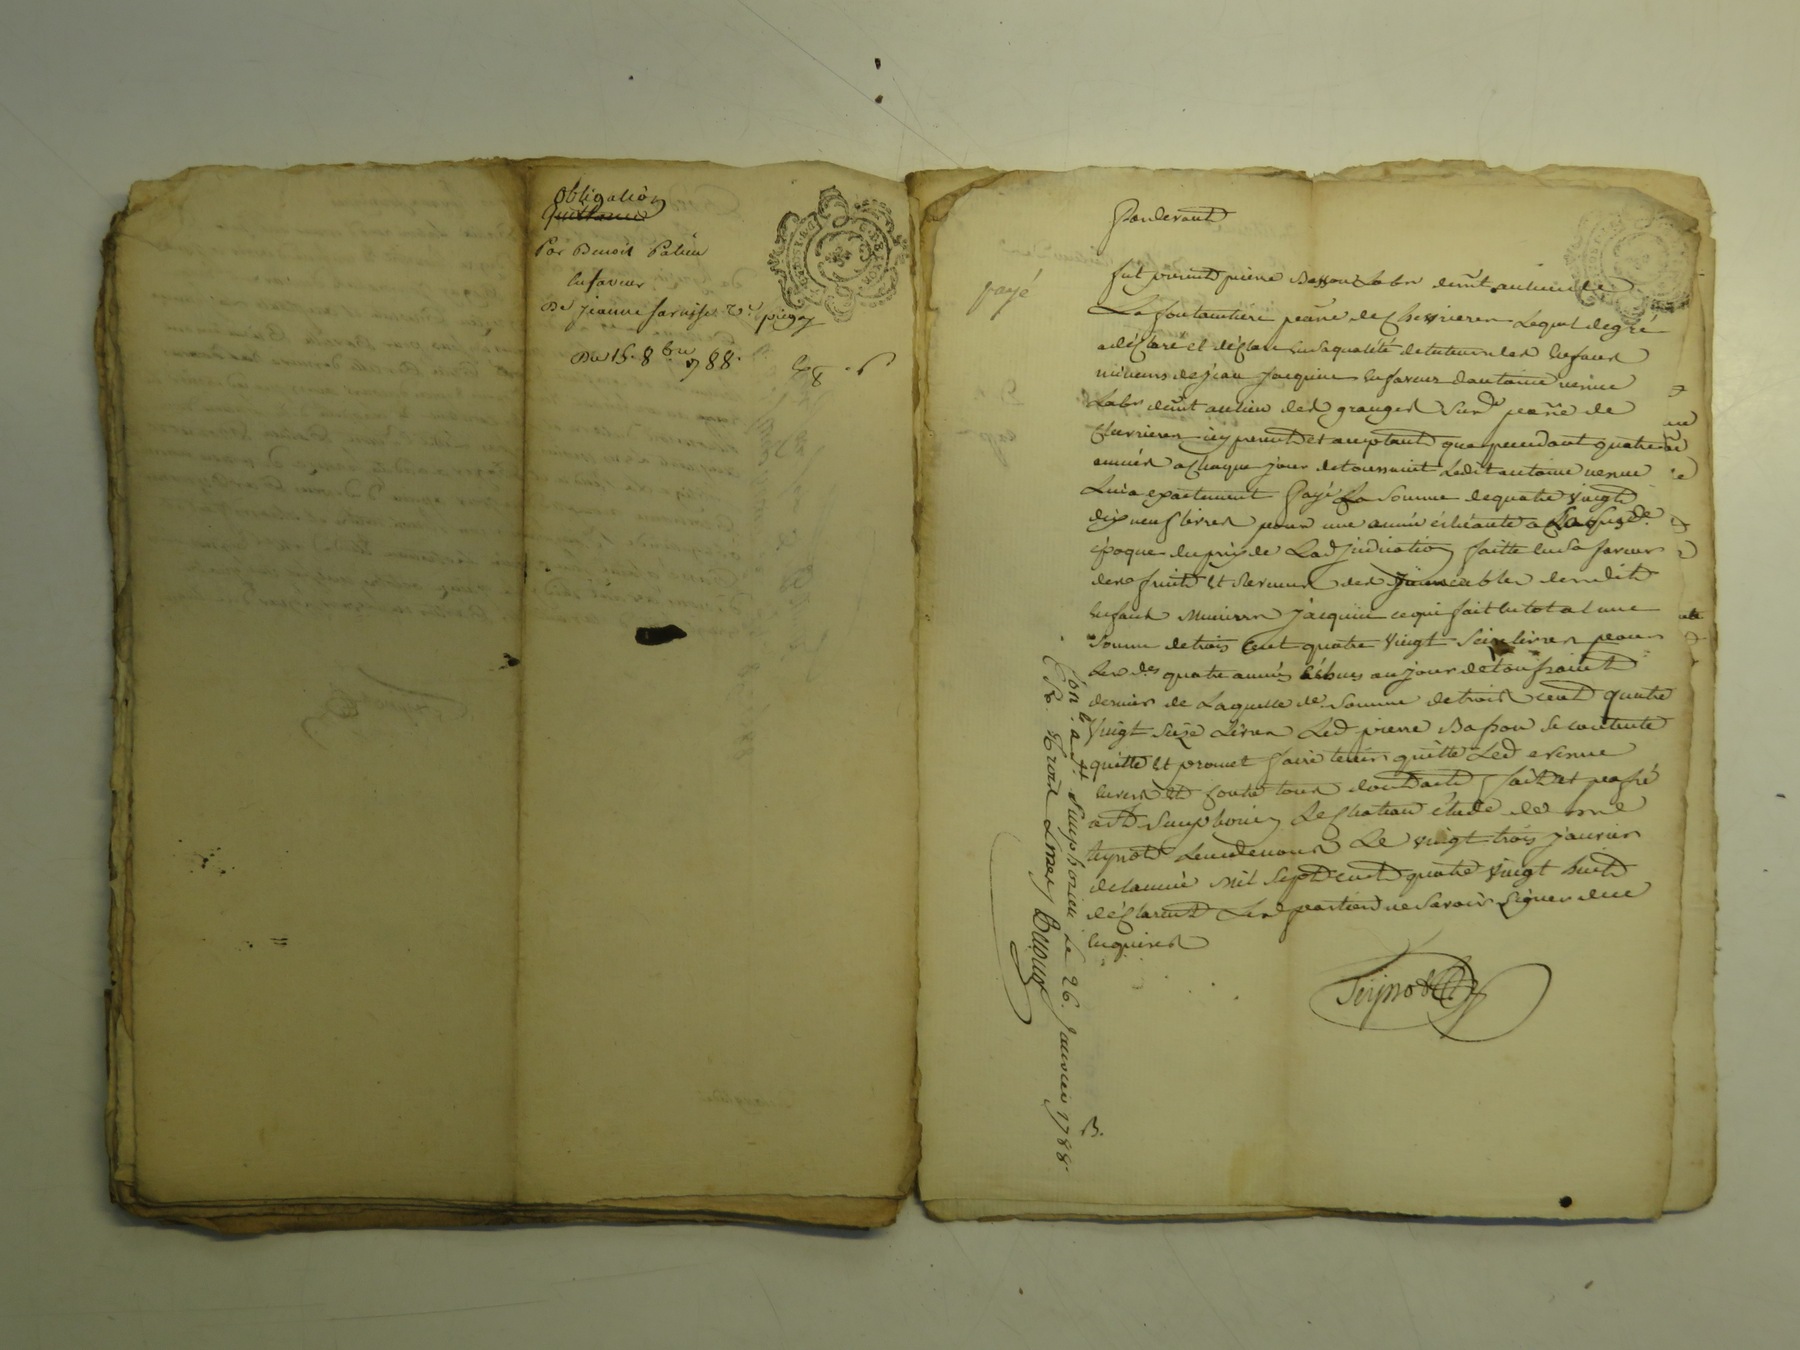 obligation
quittance
Par Benoit Palieu
en faveur
De jeanne sarnisse ve. pigay
Du 15. 8bre 1788.
Pardevant
payé
fut present pierre Basson labr demt au lieu de
La fontantiere pesse de Chevrieres lequel de gré
a déclaré et déclare en sa qualité de tuteur des enfans
mineurs de jean jacquin en faveur d'antoine venue
labr demt au lieu des granges sur de pesse de
Chevrieres icy present et acceptant que pendant quatre
années a chaque jour de toussaint ledit antoine venue
lui a exactement payé la somme de quatre vingt
dix neuf livres pour une année échéante a la susde.
époque du prix de l'adjudication faitte en sa faveur
des fruits et revenus des immeubles desdits
enfans mineurs jacquin ce qui fait en total une
somme de trois cent quatre vingt seize livres pour
les des quatre années échues au jour de toussaint
dernier de laquelle de. somme de trois cent quatre
vingt seize livres led pierre Basson se contente
quitte et promet faire tenir quitte led venue
envers et contre tous dont acte fait et passé
a st Simphorien le chateau étude de me
teynot l'un de nous le vingt trois janvier
de l'année mil sept cent quatre vingt huit
déclarent les parties ne savoir signer de ce
enquises
Con.lé a St. Simphorien le 26. janvier 1788.
Rs. trois livres Dupuy